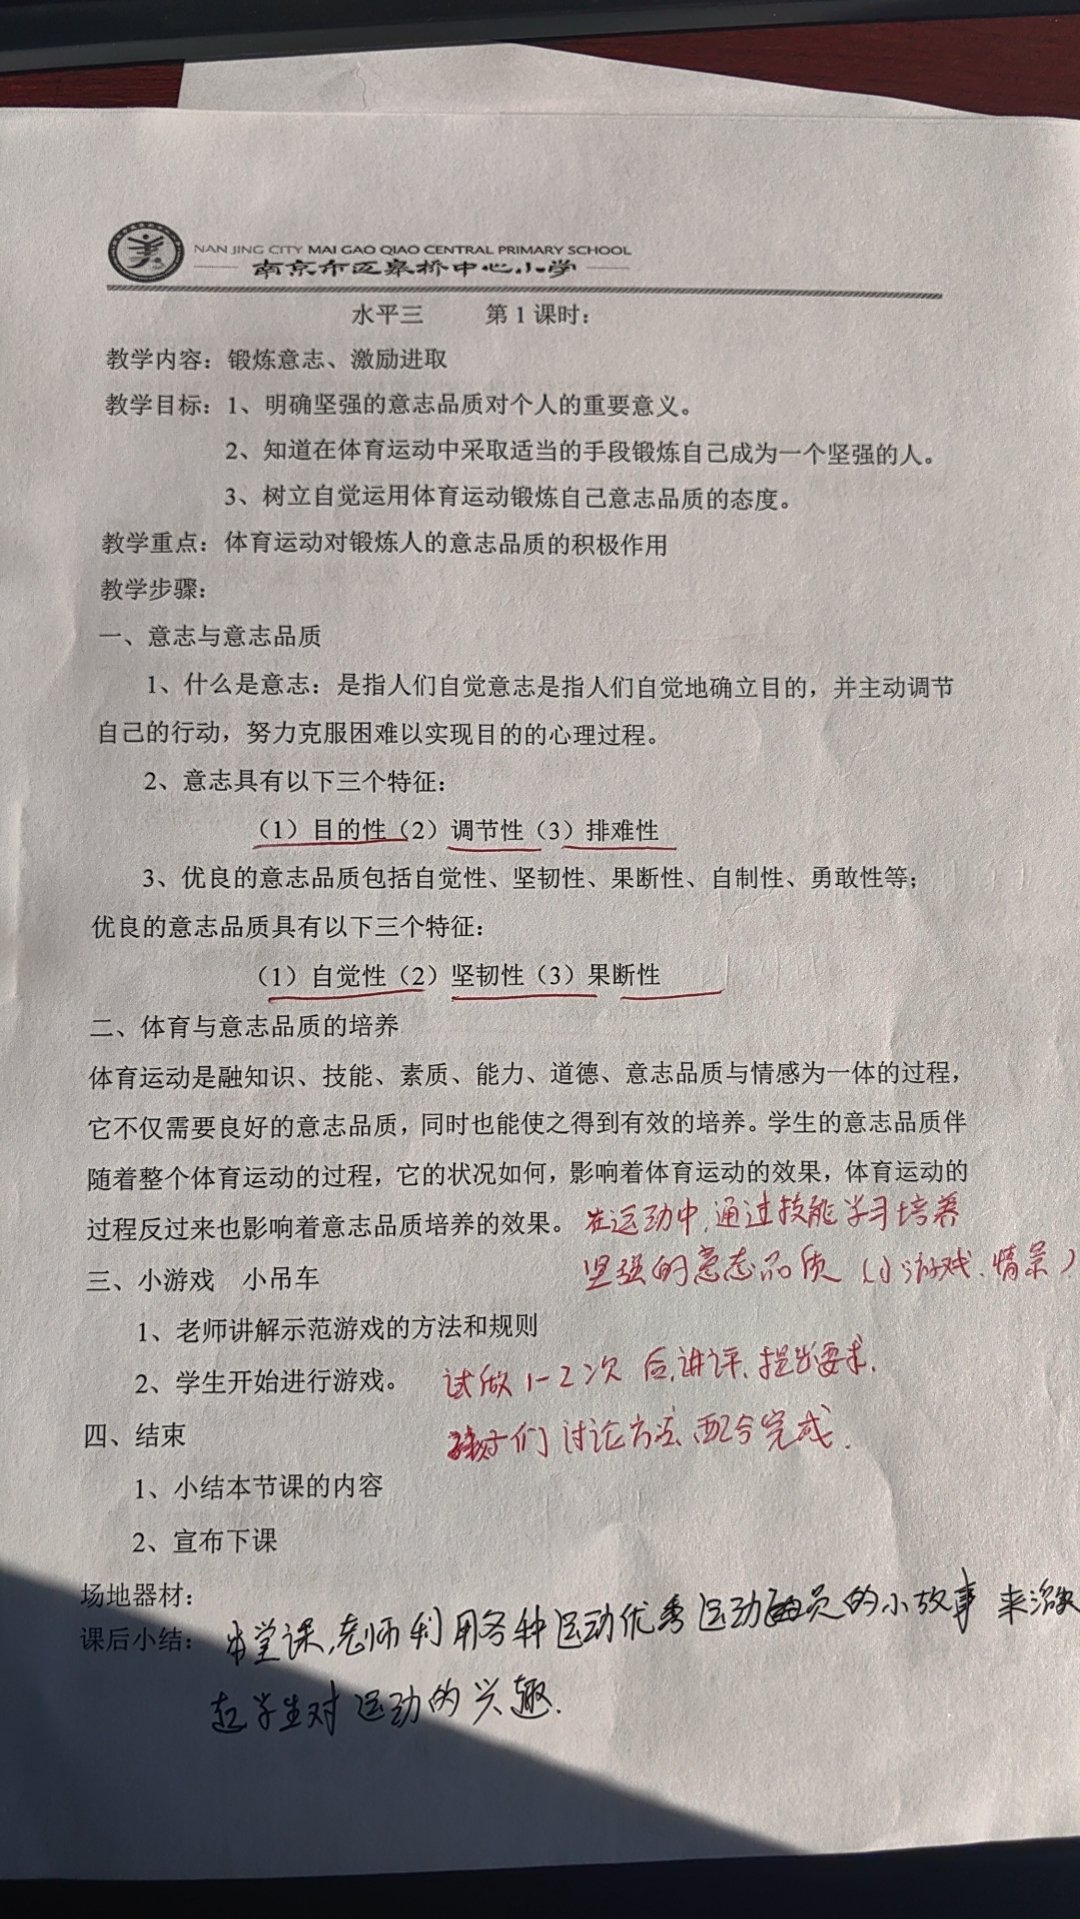 NAN JING CITY MAI GAO QIAO CENTRAL PRIMARY SCHOOL
南京市迈皋桥中心小学
水平三 第1课时：
教学内容：锻炼意志、激励进取
教学目标：1、明确坚强的意志品质对个人的重要意义。
2、知道在体育运动中采取适当的手段锻炼自己成为一个坚强的人。
3、树立自觉运用体育运动锻炼自己意志品质的态度。
教学重点：体育运动对锻炼人的意志品质的积极作用
教学步骤：
一、意志与意志品质
1、什么是意志：是指人们自觉意志是指人们自觉地确立目的，并主动调节
自己的行动，努力克服困难以实现目的的心理过程。
2、意志具有以下三个特征：
（1）目的性（2）调节性（3）排难性
3、优良的意志品质包括自觉性、坚韧性、果断性、自制性、勇敢性等；
优良的意志品质具有以下三个特征：
（1）自觉性（2）坚韧性（3）果断性
二、体育与意志品质的培养
体育运动是融知识、技能、素质、能力、道德、意志品质与情感为一体的过程，
它不仅需要良好的意志品质，同时也能使之得到有效的培养。学生的意志品质伴
随着整个体育运动的过程，它的状况如何，影响着体育运动的效果，体育运动的
过程反过来也影响着意志品质培养的效果。 在运动中，通过技能学习培养
坚强的意志品质（小游戏、情景）
三、小游戏 小吊车
1、老师讲解示范游戏的方法和规则
2、学生开始进行游戏。 试做1-2次后，讲评、提出要求．
四、结束 孩子们讨论方法、配合完成．
1、小结本节课的内容
2、宣布下课
场地器材：
课后小结：本堂课，老师利用各种运动优秀运动员的小故事来激
起学生对运动的兴趣．